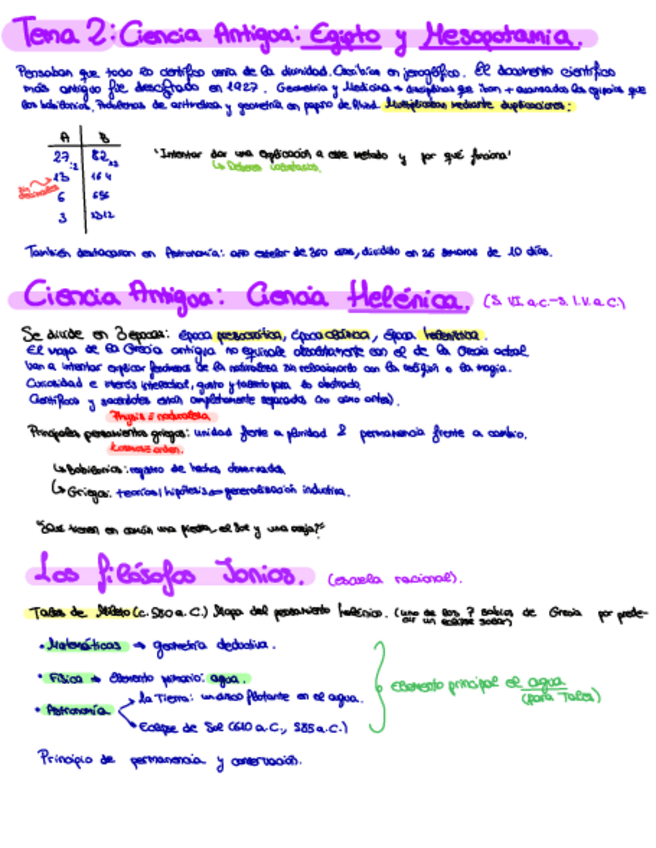 Tema 2: Ciencia Antigua: Egipto y Mesopotamia.
Pensaban que todo lo científico venía de la divinidad. Escribían en jeroglífico. El documento científico
más antiguo fue descifrado en 1927. Geometría y Medicina → disciplinas que iban + avanzadas los egipcios que
los babilonios. Problemas de aritmética y geometría en papiro de Rhind. Multiplicaban mediante duplicaciones:
A B
27 82
:2 x2
13 164
sin decimales
6 656
3 1312
"Intentar dar una explicación a este método y por qué funciona"
↳ Deberes
También destacaron en Astronomía: año estelar de 360 días, dividido en 36 semanas de 10 días.
Ciencia Antigua: Ciencia Helénica. (S. VI. a.c.-S. I.V. a.C)
Se divide en 3 épocas: época presocrática, época clásica, época helenística.
El mapa de la Grecia antigua no equivale absolutamente con el de la Grecia actual
Van a intentar explicar fenómenos de la naturaleza sin relacionarlo con la religión o la magia.
Curiosidad e interés intelectual, gusto y talento para lo abstracto.
Científicos y sacerdotes están completamente separados (no como antes).
Physis = naturaleza
Principales pensamientos griegos: unidad frente a pluridad & permanencia frente a cambio.
Kosmos = orden.
↳ Babilonios: registro de hechos observados
↳ Griegos: teorías/hipótesis → generalización inductiva.
"¿Qué tienen en común una piedra, el Sol y una oveja?"
Los filósofos Jonios. (escuela racional).
Tales de Mileto (c. 580 a. C.) Mapa del pensamiento helénico. (uno de los 7 sabios de Grecia por prede-
cir un eclipse solar)
• Matemáticas → geometría deductiva.
• Física → Elemento primario: agua.
• Astronomía
la Tierra: un disco flotante en el agua.
Eclipse de Sol (610 a.C., 585 a.C.)
Elemento principal el agua
(para Tales)
Principio de permanencia y conservación.